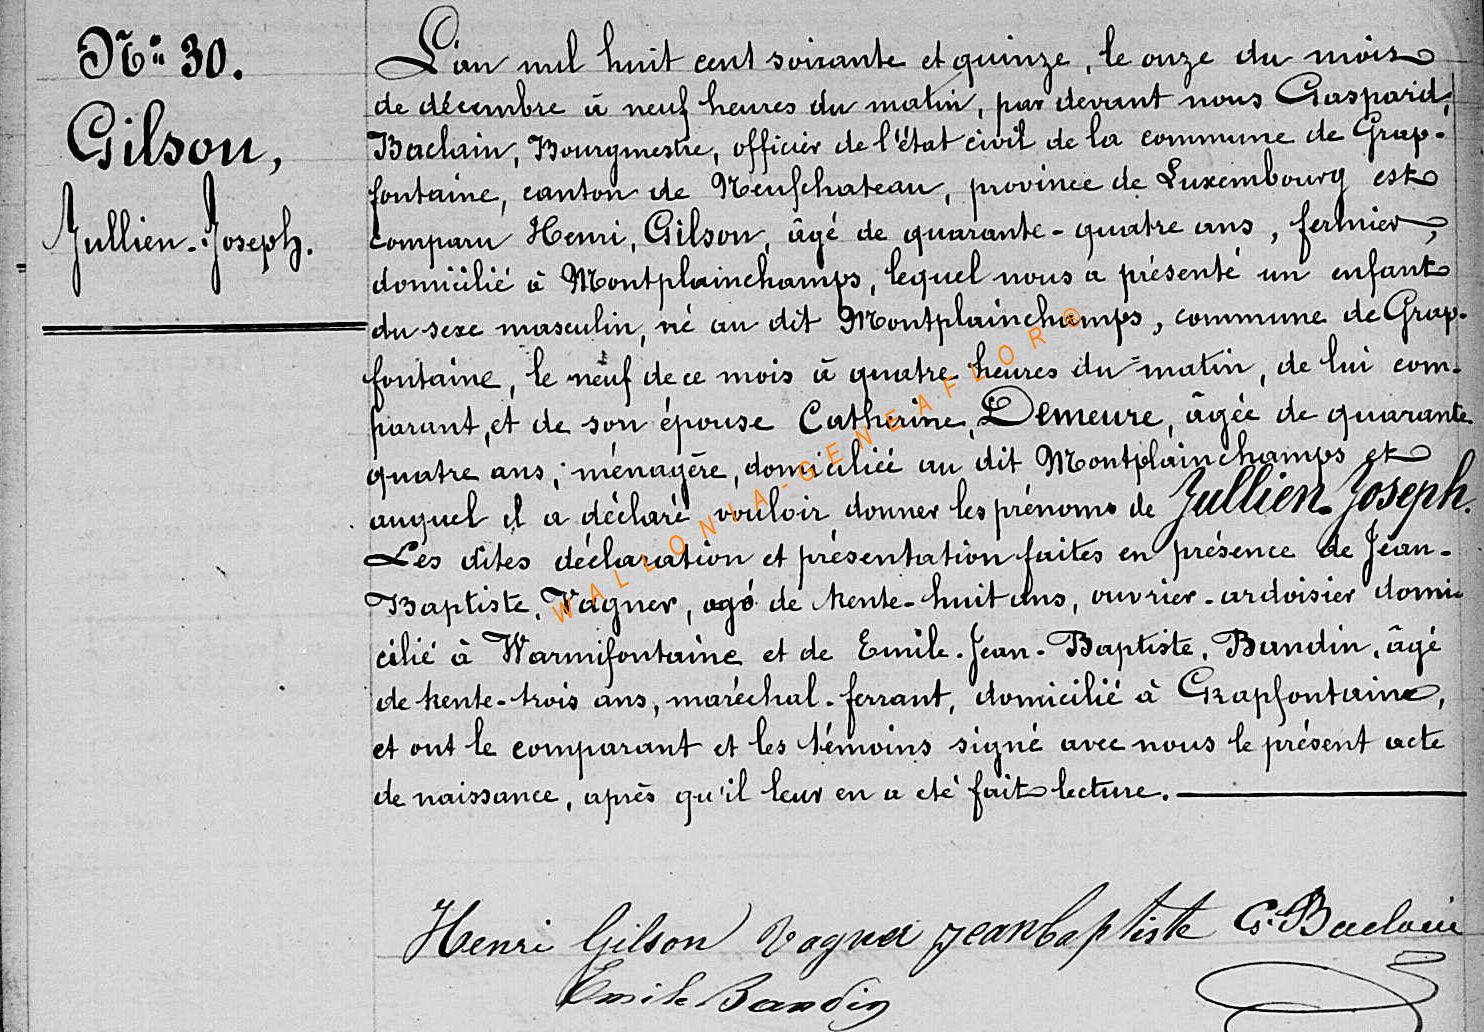 N° 30.
Gilson,
Jullien-Joseph.
L'an mil huit cent soixante et quinze, le onze du mois
de décembre à neuf heures du matin, par devant nous Gaspard,
Baclain, Bourgmestre, officier de l'état civil de la commune de Grap-
fontaine, canton de Neufchateau, province de Luxembourg est
comparu Henri, Gilson, âgé de quarante-quatre ans, fermier,
domicilié à Montplainchamps, lequel nous a présenté un enfant
du sexe masculin, né au dit Montplainchamps, commune de Grap-
fontaine, le neuf de ce mois à quatre heures du matin, de lui com-
parant, et de son épouse Catherine, Demeure, âgée de quarante
quatre ans, ménagère, domiciliée au dit Montplainchamps et
auquel il a déclaré vouloir donner les prénoms de Jullien-Joseph.
Les dites déclaration et présentation faites en présence de Jean-
Baptiste, Vagner, agé de trente-huit ans, ouvrier-ardoisier domi-
cilié à Warmifontaine et de Emile-Jean-Baptiste, Bandin, âgé
de trente-trois ans, maréchal-ferrant, domicilié à Grapfontaine,
et ont le comparant et les témoins signé avec nous le présent acte
de naissance, après qu'il leur en a eté fait lecture.
WALLONIA-GENEAFLORO
Henri Gilson Vagner jeanbaptiste G. Baclain
Emile Bandin